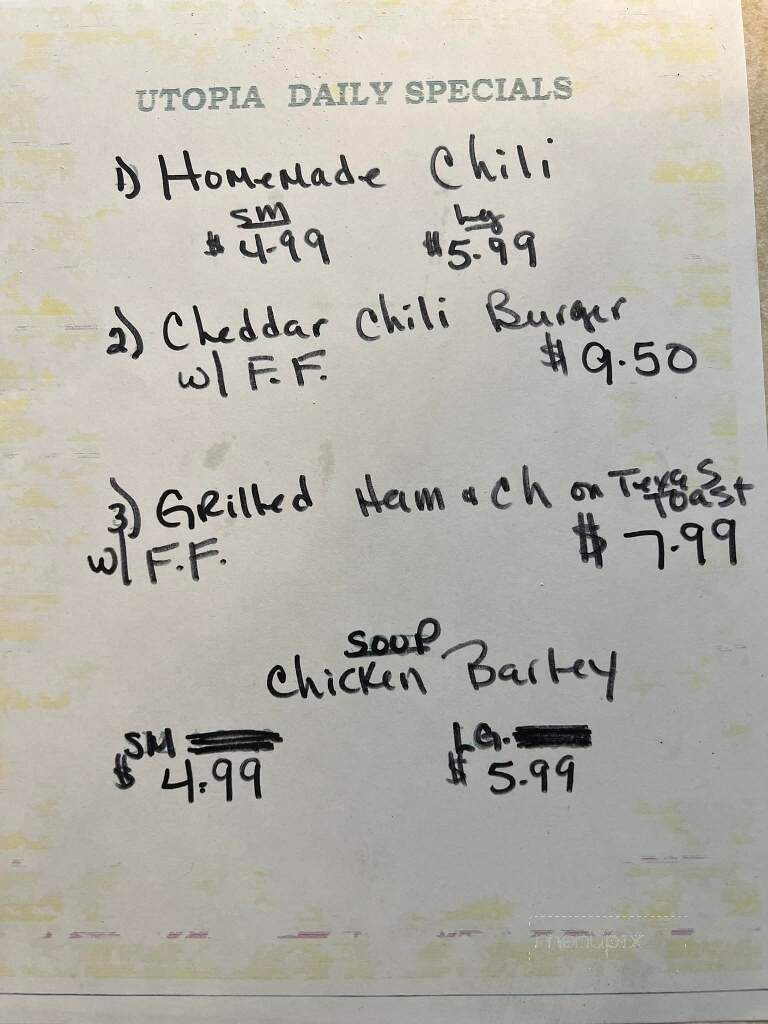 UTOPIA DAILY SPECIALS
1) Homemade Chili
SM Lg
$4.99 $5.99
2) Cheddar Chili Burger
w/ F.F. $9.50
3) Grilled Ham & Ch on Texas
Toast
w/ F.F. $7.99
SOUP
Chicken Barley
SM LG.
$4.99 $5.99
menupix